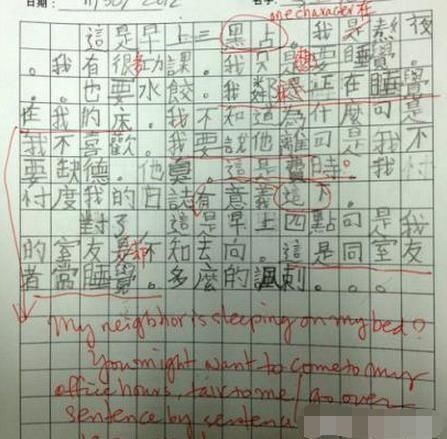 日期: 11/30/2012
one character 在
這是早上二黑占。我是熬夜
。我有很多功課。我只是想要睡覺
。也要水餃。我鄰還正在睡覺
在我的床。我不知道為什麼可是
我不喜歡。我要說他離可是我不
要缺德。他真。這是費時。我忖
忖度我的日誌有意義這下。
對了 這是早上四點可是我
的室友是不知去向。這是同室友
者當睡覺。多麼的諷刺。。。
My neighbor is sleeping on my bed?
You might want to come to my
office hours, talk to me / go over
sentence by sentence